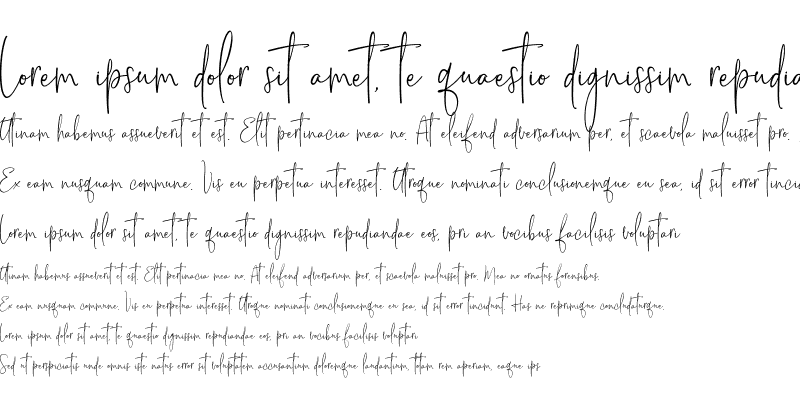 Lorem ipsum dolor sit amet, te quaestio dignissim repudia
Utinam habemus assueverit et est. Elit pertinacia mea no. At eleifend adversarium per, et scaevola maluisset pro.
Ex eam nusquam commune. Vis eu perpetua interesset. Utroque nominati conclusionemque eu sea, id sit error tincid
Lorem ipsum dolor sit amet, te quaestio dignissim repudiandae eos, pri an vocibus facilisis voluptari
Utinam habemus assueverit et est. Elit pertinacia mea no. At eleifend adversarium per, et scaevola maluisset pro. Mea no ornatus forensibus.
Ex eam nusquam commune. Vis eu perpetua interesset. Utroque nominati conclusionemque eu sea, id sit error tincidunt. Has ne reprimique concludaturque.
Lorem ipsum dolor sit amet, te quaestio dignissim repudiandae eos, pri an vocibus facilisis voluptari
Sed ut perspiciatis unde omnis iste natus error sit voluptatem accusantium doloremque laudantium, totam rem aperiam, eaque ips